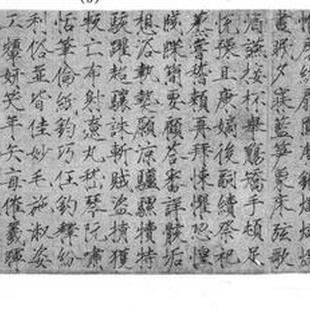 房紈扇圓潔銀燭煒煌
晝眠夕寐藍笋象床弦歌
酒讌接杯舉觴矯手頓足
悅豫且康嫡後嗣續祭祀
蒸嘗稽顙再拜悚懼恐惶
牋牒簡要顧答審詳骸垢
想浴執熱願涼驢騾犢特
駭躍超驤誅斬賊盜捕獲
叛亡布射遼丸嵇琴阮嘯
恬筆倫紙鈞巧任釣釋紛
利俗並皆佳妙毛施淑姿
工顰妍笑年矢每催羲暉